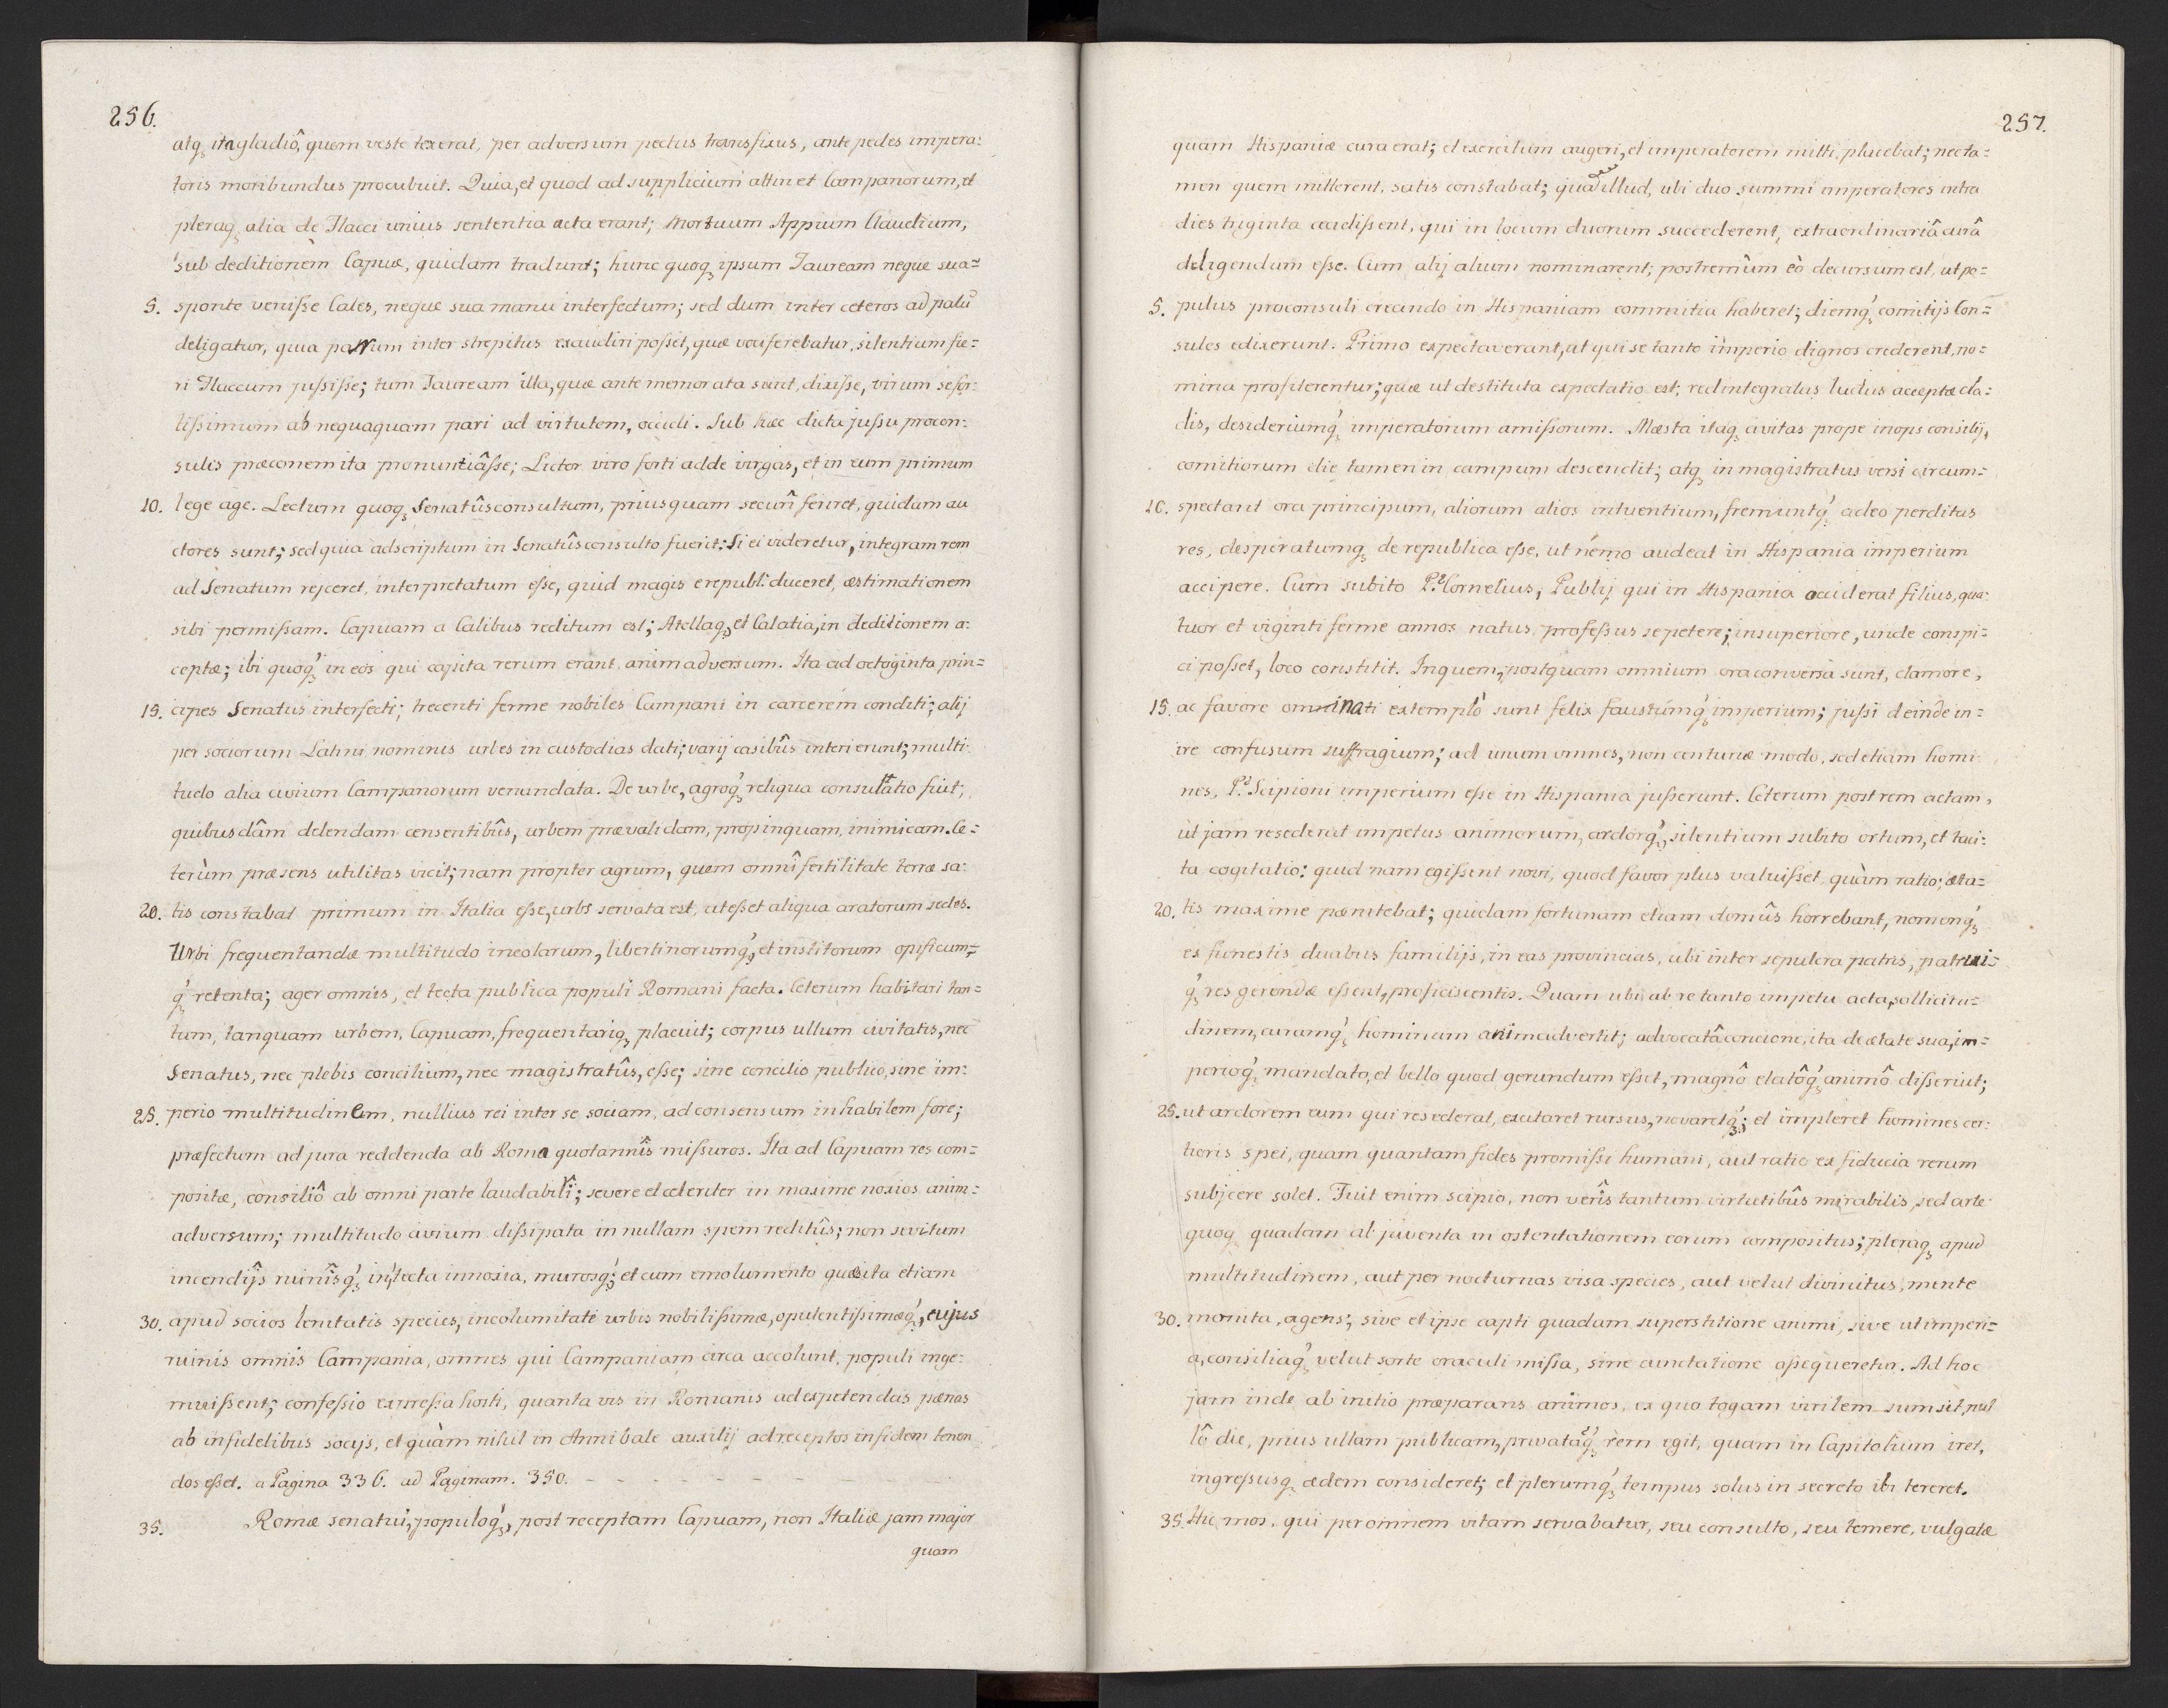 256.
atq₃ ita gladiô, quem veste texerat, per adversum pectus transfixus, ante pedes impera=
toris moribundus procubuit. Quia, et quod ad supplicium attinet Campanorum, et
pleraq₃ alia de Flacci unius sententia acta erant; Mortuum Appium Claudium,
sub deditionem Capuæ, quidam tradunt; hunc quoq₃ ipsum Tauream neque sua=
5. sponte venisse Cales, neque sua manu interfectum; sed dum inter ceteros ad palũ
deligatur, quia parum inter strepitus exaudiri posset, quæ vociferebatur, silentium fie=
ri Flaccum jussisse; tum Tauream illa, quæ ante memorata sunt, dixisse, virum se for=
tissimum ab nequaquam pari ad virtutem, occidi. Sub hæc dicta jussu procon=
sulis præconem ita pronuntiâsse; Lictor viro forti adde virgas, et in eum primum
10. lege age. Lectum quoq₃ Senatûsconsultum, priusquam securî feriret, quidam au
ctores sunt; sed quia adscriptum in Senatûsconsulto fuerit: Si ei videretur, integram rem
ad Senatum rejceret, interpretatum esse, quid magis e republ: duceret, æstimationem
sibi permissam. Capuam a Calibus reditum est; Atellaq₃, et Calatia, in deditionem a=
ceptæ; ibi quoq́₃ in eos qui capita rerum erant, animadversum. Ita ad octoginta prin=
15. cipes Senatus interfecti; trecenti ferme nobiles Campani in carcerem conditi; alij
per sociorum Latini nominis urbes in custodias dati; varij casibûs interierunt; multi=
tudo alia civium Campanorum venundata. De urbe, agroq́₃ reliqua consultatio fuit;
quibusdâm delendam censentibûs, urbem prævalidam, propinquam, inimicam. Ce=
terùm præsens utilitas vicit; nam propter agrum, quem omnî fertilitate terræ sa=
20. tis constabat primum in Italia esse, urbs servata est, ut esset aliqua aratorum sedes.
Urbi frequentandæ multitudo incolarum, libertinorumq́₃, et institorum opificum=
q́₃ retenta; ager omnis, et tecta publica populi Romani facta. Ceterum habitari tan=
tum, tanquam urbem, Capuam, frequentariq₃ placuit; corpus ullum civitatis, nec
Senatus, nec plebis concilium, nec magistratûs, esse; sine concilio publico, sine im=
25. perio multitudinem, nullius rei inter se sociam, ad consensum inhabilem fore;
præfectum ad jura reddenda ab Roma quotannîs missuros. Ita ad Capuam res com=
positæ, consiliô ab omni parte laudabilî; severe et celeriter in maxime noxios anim=
adversum; multitudo civium dissipata in nullam spem reditûs; non sævitum
incendijs ruinîsq́₃ in tecta innoxia, murosq́₃; et cum emolumento quæsita etiam
30. apud socios lenitatis species, incolumitate urbis nobilissimæ, opulentissimæq́₃, cujus
ruinis omnis Campania, omnes qui Campaniam circa accolunt, populi inge=
muissent; confessio expressa hosti, quanta vis in Romanis ad expetendas pænas
ab infidelibus socijs, et quàm nihil in Annibale auxilij ad receptos in fidem tenen
dos esset. a Pagina 336. ad Paginam. 350. - - - - - - - - -
35. Romæ senatui, populoq́₃, post receptam Capuam, non Italiæ jam major
quam
257.
quam Hispaniæ cura erat; et exercitum augeri, et imperatorem mitti placebat; nec ta=
men quem mitterent, satis constabat; quàm illud, ubi duo summi imperatores intra
dies triginta cecidissent, qui in locum duorum succederent, extraordinariâ curâ
deligendum esse. Cum alij alium nominarent; postremùm eò decursum est, ut po=
5. pulus proconsuli creando in Hispaniam commitia haberet; diemq́₃ comitijs Con=
sules edixerunt. Primo expectaverant, ut qui se tanto imperio dignos crederent, no=
mina profiterentur; quæ ut destituta expectatio est; redintegratus luctus acceptæ cla=
dis, desideriumq́₃ imperatorum amissorum. Mæsta itaq₃ civitas prope inops consilij,
comitiorum die tamen in campum descendit; atq₃ in magistratus versi circum=
10. spectant ora principum, aliorum alios intuentium, fremuntq́₃ adeo perditas
res, desperatumq₃ de republica esse, ut nemo audeat in Hispania imperium
accipere. Cum subito P: Cornelius, Publij qui in Hispania occiderat filius, qua=
tuor et viginti ferme annos natus, professus se petere; in superiore, unde conspi=
ci posset, loco constitit. In quem, postquam omnium ora conversa sunt, clamore,
15. ac favore ominati extemplò sunt felix faustúmq́₃ imperium; jussi deinde in=
ire confusum suffragium; ad unum omnes, non centuriæ modo, sed etiam homi=
nes, P: Scipioni imperium esse in Hispania jusserunt. Ceterum post rem actam,
ut jam resederat impetus animorum, ardorq́₃, silentium subito ortum, et taci=
ta cogitatio: quid nam egissent novi, quod favor plus valuisset, quàm ratio; æta=
20. tis maxime pænitebat; quidam fortunam etiam domûs horrebant, nomenq́₃
ex funestis duabus familijs, in eas provincias, ubi inter sepulcra patris, patrui=
q́₃ res gerendæ essent, proficiscentis. Quam ubi ab re tanto impetu acta, sollicitu=
dinem, curamq́₃ hominum animadvertit; advocatâ concione, ita de ætate sua, im=
perioq́₃ mandato, et bello quod gerundum esset, magnô elatôq́₃ animô disseruit;
25. ut ardorem eum qui resederat, excitaret rursus, novaretq́₃; et impleret homines cer=
tioris spei, quam quantam fides promissi humani, aut ratio ex fiducia rerum
subjcere solet. Fuit enim scipio, non verîs tantum virtutibûs mirabilis, sed arte
quoq₃ quadam ab juventa in ostentationem eorum compositus; pleraq₃ apud
multitudinem, aut per nocturnas visa species, aut velut divinitus, mente
30. monita, agens; sive et ipse capti quadam superstitione animi, sive ut imperi=
a, consiliaq́₃ velut sorte oraculi missa, sine cunctatione assequeretur. Ad hoc
jam inde ab initio præparans animos, ex quo togam virilem sumsit, nul
lô die, prius ullam publicam, privatáq́₃ rem egit, quam in Capitolium iret,
ingressusq₃ ædem consideret; et plerumq́₃ tempus solus in secreto ibi tereret.
35. Hic mos, qui per omnem vitam servabatur, seu consulto, seu temere, vulgatæ